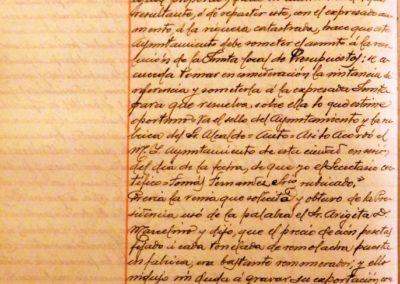 resultante, ó de repartir este, con el expresado au-
mento á la riqueza catastrada, hace que este
Ayuntamiento debe someter el asunto á la reso-
lución de la Junta local de Presupuestos; se a-
cuerda tomar en consideración la instancia de
referencia y someterla á la expresada Junta
para que resuelva sobre ella lo que estime
oportuno = Va el sello del Ayuntamiento y la rú-
brica del Sr Alcalde = Auto = Así lo Acordó el
M. I. Ayuntamiento de esta ciudad en sesión
del día de la fecha, de que yo el Secretario cer-
tifico = Tomás Fernandez, Srio rubricado."
Previa la venia que solicitó y obtuvo de la Pre-
sidencia usó de la palabra el Sr. Arigita D.
Marcelino y dijo, que el precio de cien pesetas
fijado á cada tonelada de remolacha puesta
en fabrica, era bastante remunerador; y ello
indujo sin duda á gravar su exportación, con